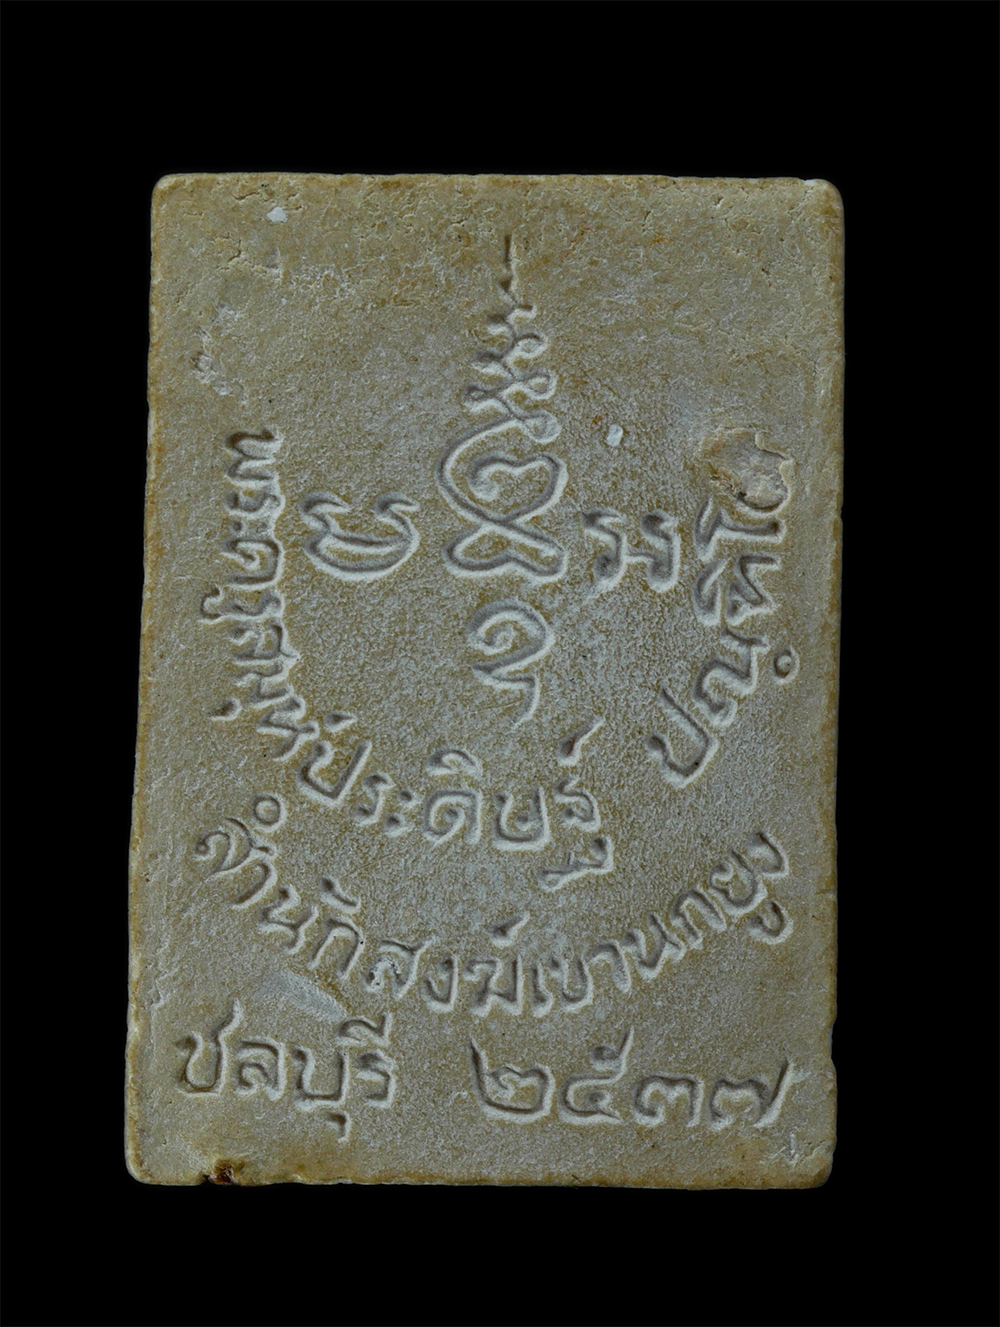 พระครูสมุห์ประดิษฐ์ ปณฺฑิโต
สำนักสงฆ์เขานกยูง
ชลบุรี ๒๕๓๗